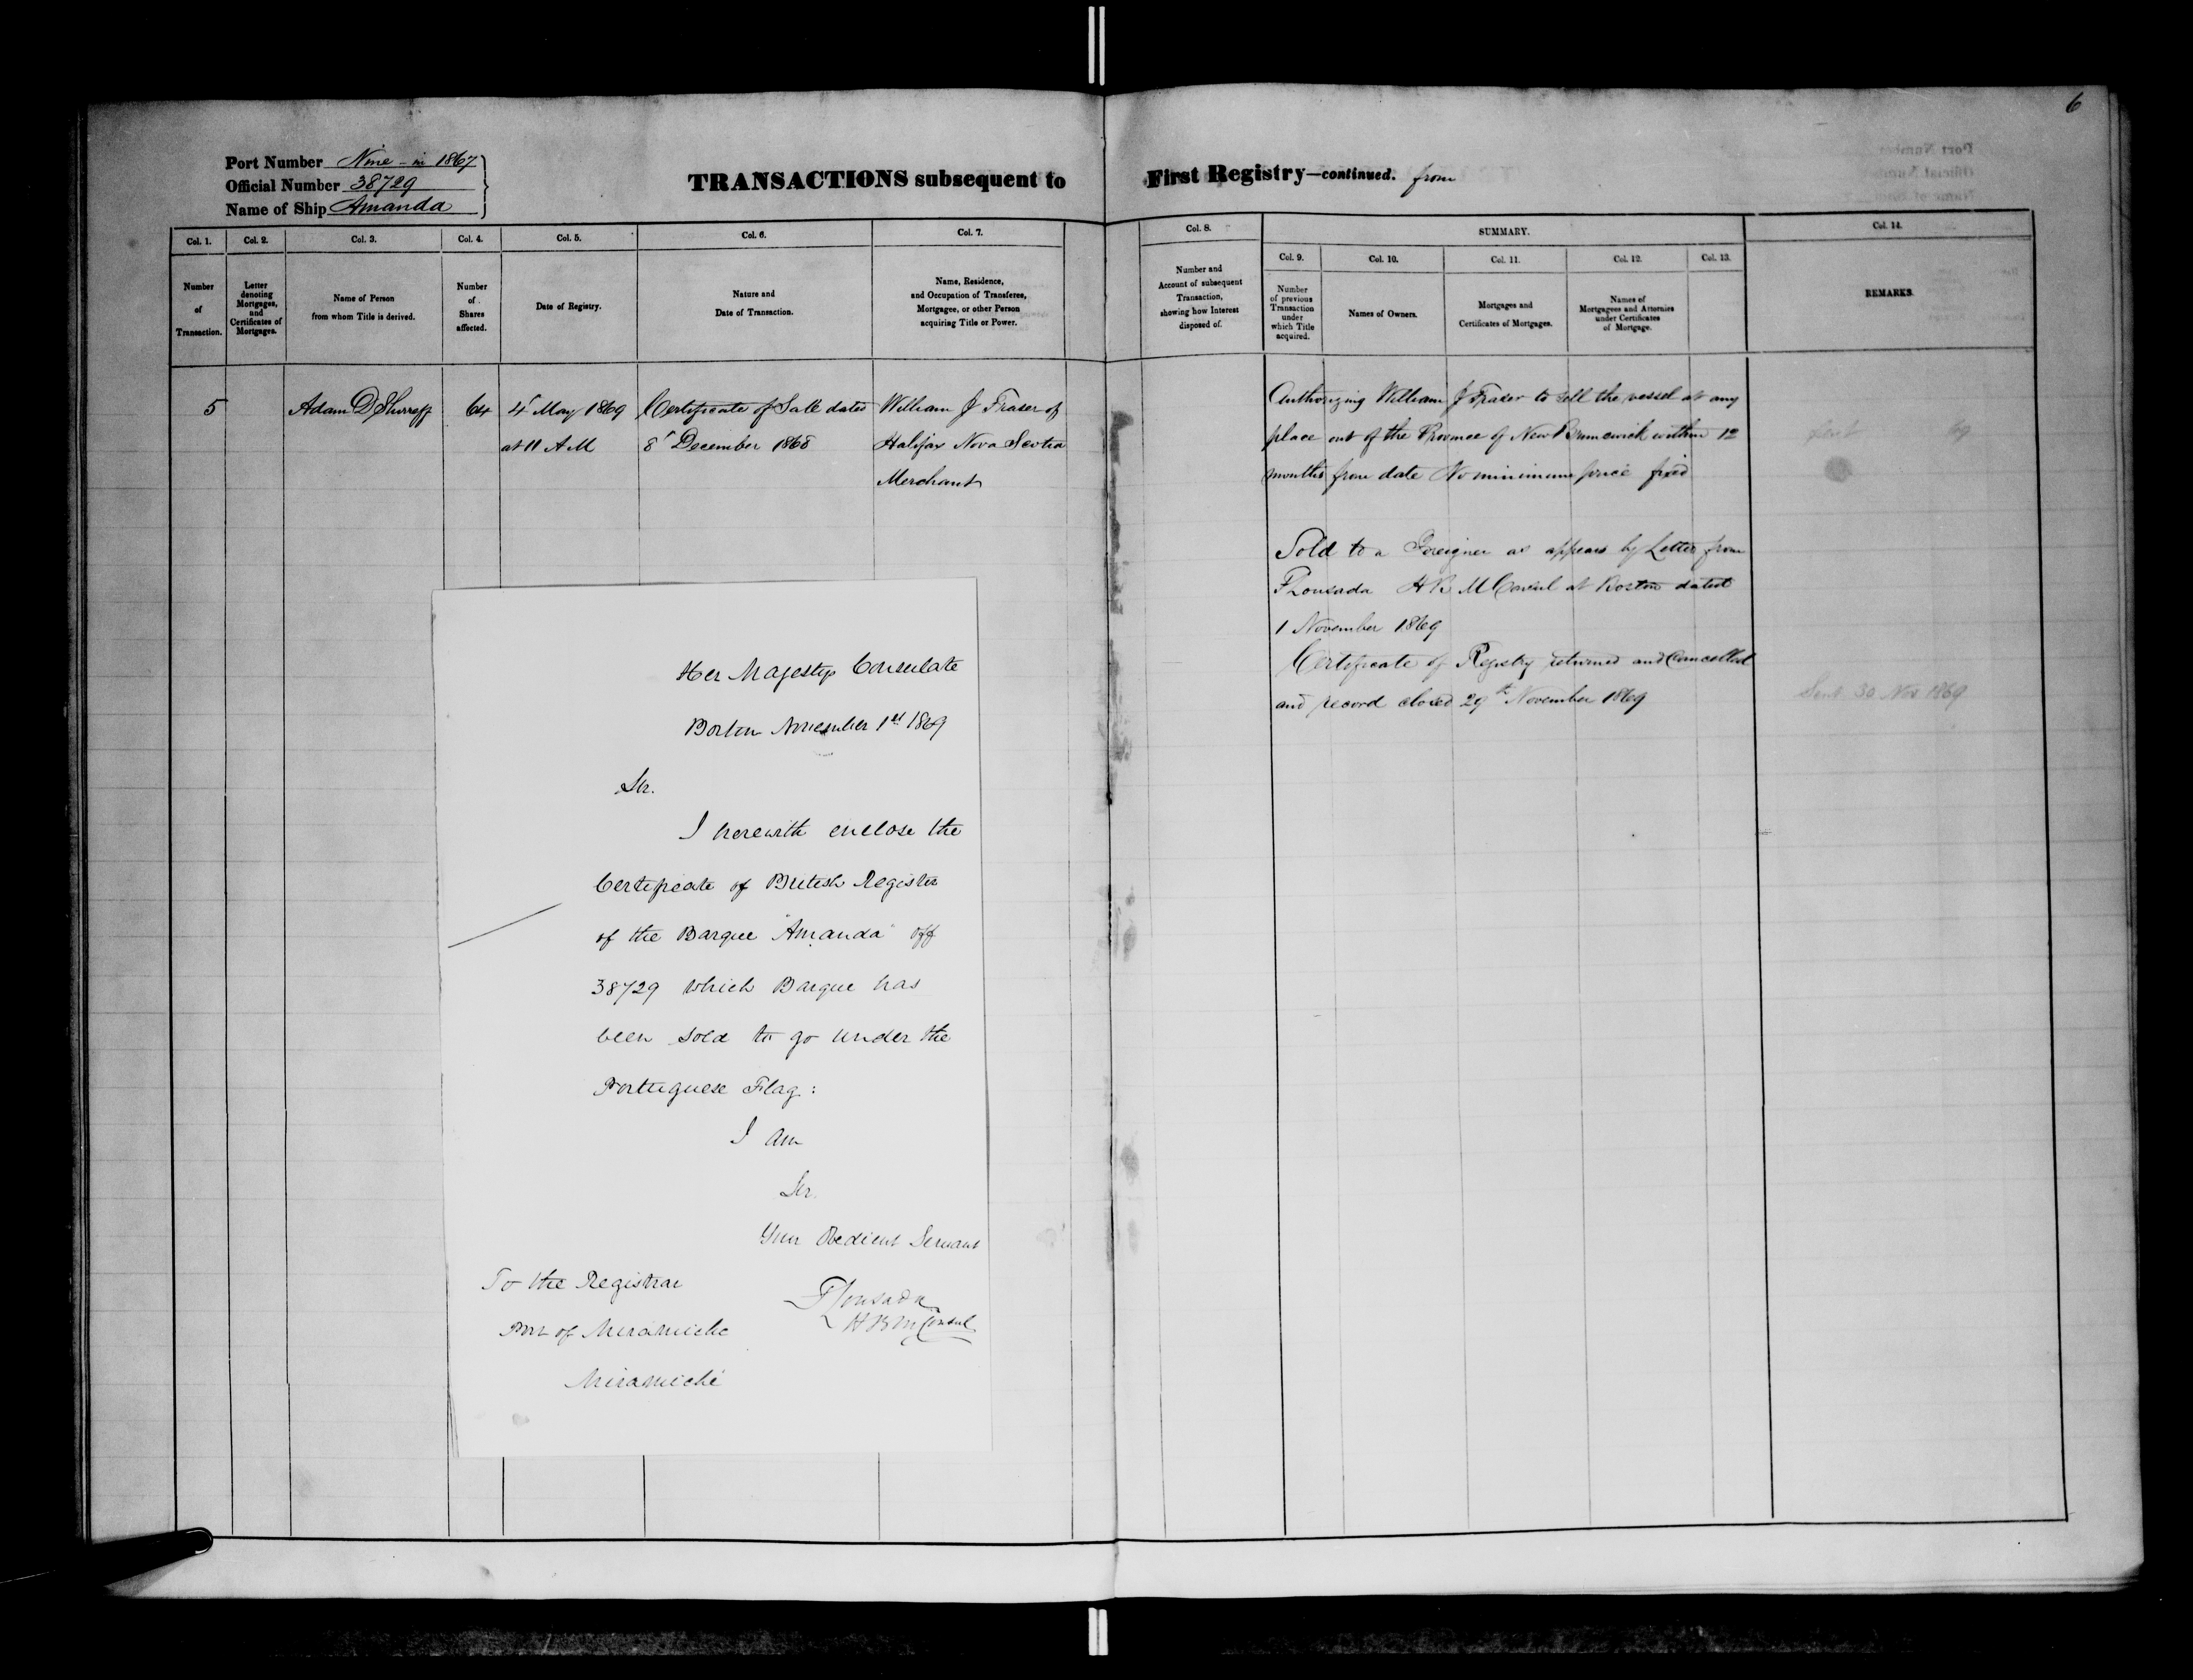 6
Port Number Nine - in 1867
Official Number 38729
Name of Ship Amanda
TRANSACTIONS subsequent to First Registry—continued. from
Col. 1.
Number
of
Transaction.
Col. 2.
Letter
denoting
Mortgages,
and
Certificates of
Mortgages.
Col. 3.
Name of Person
from whom Title is derived.
Col. 4.
Number
of
Shares
affected.
Col. 5.
Date of Registry.
Col. 6.
Nature and
Date of Transaction.
Col. 7.
Name, Residence,
and Occupation of Transferee,
Mortgagee, or other Person
acquiring Title or Power.
Col. 8.
Number and
Account of subsequent
Transaction,
showing how Interest
disposed of.
SUMMARY.
Col. 9.
Number
of previous
Transaction
under
which Title
acquired.
Col. 10.
Names of Owners.
Col. 11.
Mortgages and
Certificates of Mortgages.
Col. 12.
Names of
Mortgagees and Attornies
under Certificates
of Mortgage.
Col. 13.
Col. 14.
REMARKS.
5
Adam D Shirreff
64
4 May 1869
at 11 A M
Certificate of Sale dated
8 December 1868
William J Fraser of
Halifax Nova Scotia
Merchant
Authorizing William J Fraser to sell the vessel at any
place out of the Province of New Brunswick within 12
months from date No minimum price fixed
Sold to a Foreigner as appears by Letter from
F Lousada H B M Consul at Boston dated
1 November 1869
Certificate of Registry returned and Cancelled
and record closed 29th November 1869
Sent 30 Nov 1869
Her Majestys Consulate
Boston November 1st 1869
Sir.
I herewith enclose the
Certificate of British Register
of the Barque "Amanda" off
38729 which Barque has
been sold to go under the
Portuguese Flag:
I am
Sir.
Your Obedient Servant
F Lousada
H B M Consul
To the Registrar
Port of Miramichi
Miramichi